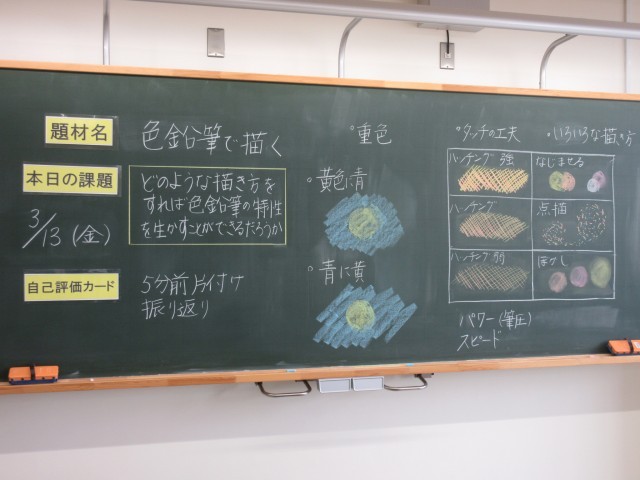 題材名
色鉛筆で描く
本日の課題
どのような描き方を
すれば色鉛筆の特性
を生かすことができるだろうか
3/13(金)
自己評価カード
5分前片付け
振り返り
・重色
・黄色に青
・青に黄
・タッチの工夫
・いろいろな描き方
ハッチング 強
なじませる
ハッチング
点描
ハッチング 弱
ぼかし
パワー(筆圧)
スピード